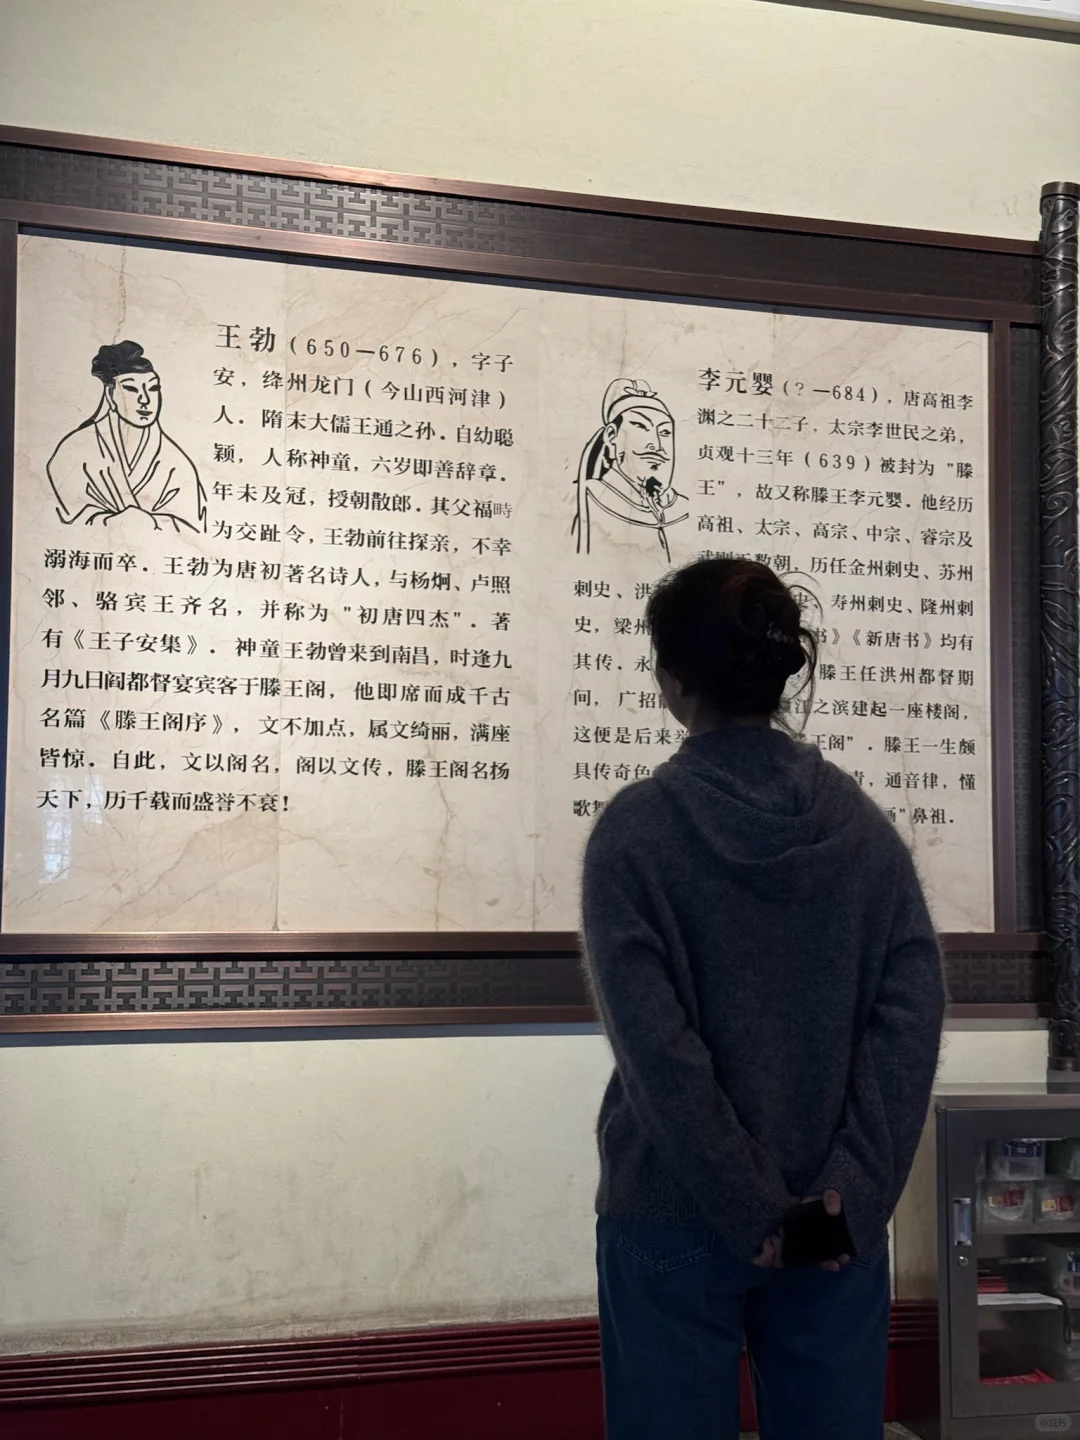 王勃（650—676），字子
安，绛州龙门（今山西河津）
人．隋末大儒王通之孙．自幼聪
颖，人称神童，六岁即善辞章．
年未及冠，授朝散郎．其父福畤
为交趾令，王勃前往探亲，不幸
溺海而卒．王勃为唐初著名诗人，与杨炯、卢照
邻、骆宾王齐名，并称为"初唐四杰"．著
有《王子安集》．神童王勃曾来到南昌，时逢九
月九日阎都督宴宾客于滕王阁，他即席而成千古
名篇《滕王阁序》，文不加点，属文绮丽，满座
皆惊．自此，文以阁名，阁以文传，滕王阁名扬
天下，历千载而盛誉不衰！
李元婴（？—684），唐高祖李
渊之二十二子，太宗李世民之弟，
贞观十三年（639）被封为"滕
王"，故又称滕王李元婴．他经历
高祖、太宗、高宗、中宗、睿宗及
数朝，历任金州刺史、苏州
刺史、洪 史、寿州刺史、隆州刺
史，梁州 书》《新唐书》均有
其传．永 滕王任洪州都督期
间，广招 江之滨建起一座楼阁，
这便是后来 王阁"．滕王一生颇
具传奇色 青，通音律，懂
歌 画"鼻祖．
小红书